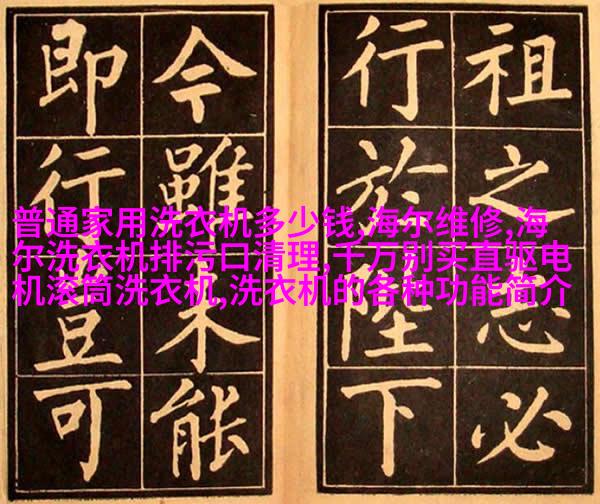 祖之志必
行於陛下
今雖未能
即行豈可
普通家用洗衣机多少钱,海尔维修,海
尔洗衣机排污口清理,千万别买直驱电
机滚筒洗衣机,洗衣机的各种功能简介